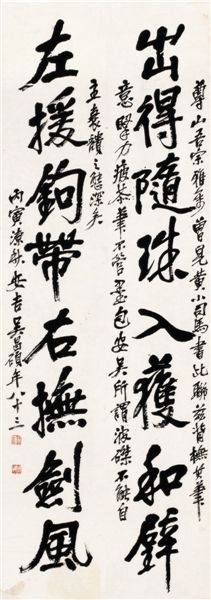 出得隨珠入獲和璧
左援鉤帶右撫劍風
尊山吾宗雅屬曾見黃小司馬書此聯茲背橅其筆
意堅力疲筆不管墨包安吳所謂波磔不能自
主衰穨之態深矣
丙寅潦秋安吉吳昌碩年八十三